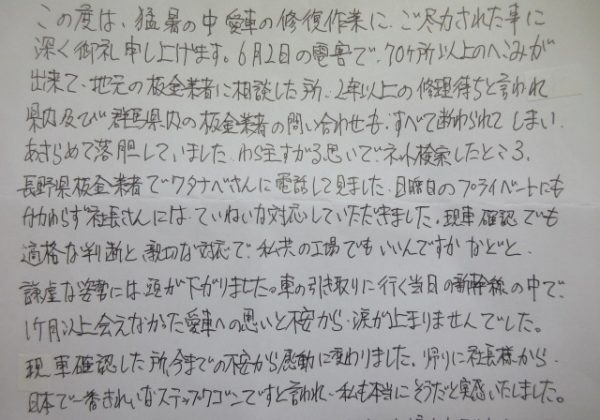 この度は、猛暑の中愛車の修復作業に、ご尽力された事に
深く御礼申し上げます。6月2日の雹害で、70ヶ所以上のへこみが
出来て、地元の板金業者に相談した所、2年以上の修理待ちと言われ
県内及び群馬県内の板金業者の問い合わせも、すべて断わられてしまい、
あきらめて落胆していました。わらをもすがる思いで、ネット検索したところ、
長野県板金業者でワタナベさんに電話して見ました。日曜日のプライベートにも
かかわらず社長さんには、ていねいな対応していただきました。現車確認でも
適格な判断と、親切な対応で、私共の工場でもいいんですか などと、
謙虚な姿勢には、頭が下がりました。車の引き取りに行く当日の新幹線の中で、
1ヶ月以上会えなかった愛車への思いと不安から、涙が止まりませんでした。
現車確認した所、今までの不安から感動に変わりました。帰りに社長様から、
日本で一番きれいなステップワゴンですと言われ、私も本当にそうだと実感いたしました。